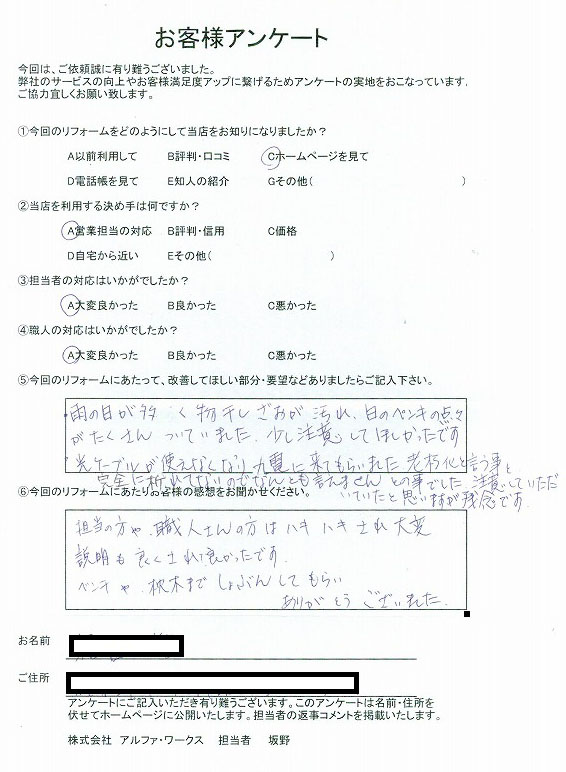 お客様アンケート
今回は、ご依頼誠に有り難うございました。
弊社のサービスの向上やお客様満足度アップに繋げるためアンケートの実地をおこなっています.
ご協力宜しくお願い致します。
①今回のリフォームをどのようにして当店をお知りになりましたか？
A以前利用して　B評判・口コミ　Cホームページを見て
D電話帳を見て　E知人の紹介　Gその他(　)
②当店を利用する決め手は何ですか？
A営業担当の対応　B評判・信用　C価格
D自宅から近い　Eその他(　)
③担当者の対応はいかがでしたか？
A大変良かった　B良かった　C悪かった
④職人の対応はいかがでしたか？
A大変良かった　B良かった　C悪かった
⑤今回のリフォームにあたって、改善してほしい部分・要望などありましたらご記入下さい。
・雨の日が多く物干しざおが汚れ、白のペンキの点々
がたくさんついていました、少し注意してほしかったです
・光ケーブルが使えなくなり九電に来てもらいました老朽化と言う事と
完全に折れてないのでなんとも言えませんとの事でした 注意していただ
いていたと思いますが残念です.
⑥今回のリフォームにあたりお客様の感想をお聞かせください。
担当の方や、職人さんの方はハキハキされ大変
説明も良くされ良かったです.
ペンキや、枕木まで しょぶんしてもらい
ありがとうございました.
お名前
ご住所
アンケートにご記入いただき有り難うございます。このアンケートは名前・住所を
伏せてホームページに公開いたします。担当者の返事コメントを掲載いたします。
株式会社　アルファ・ワークス　担当者　坂野